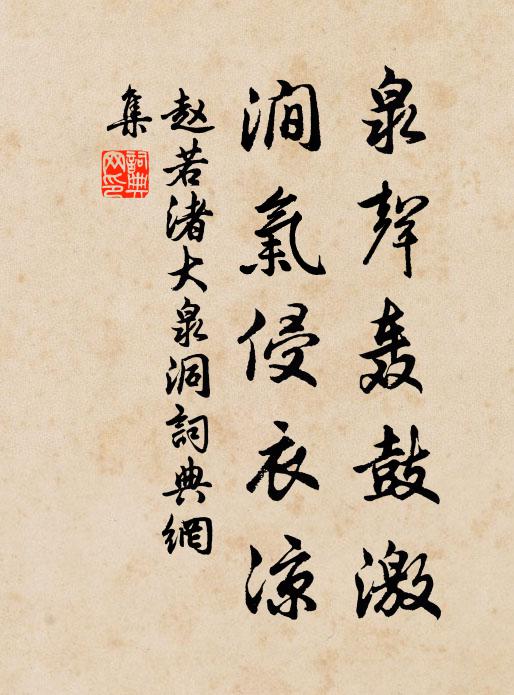 泉聲轰鼓激
澗氣侵衣凉
赵若渚大泉洞詞典網
集
詞典网印